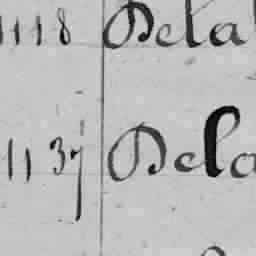 1118 Dela
1137 Dela